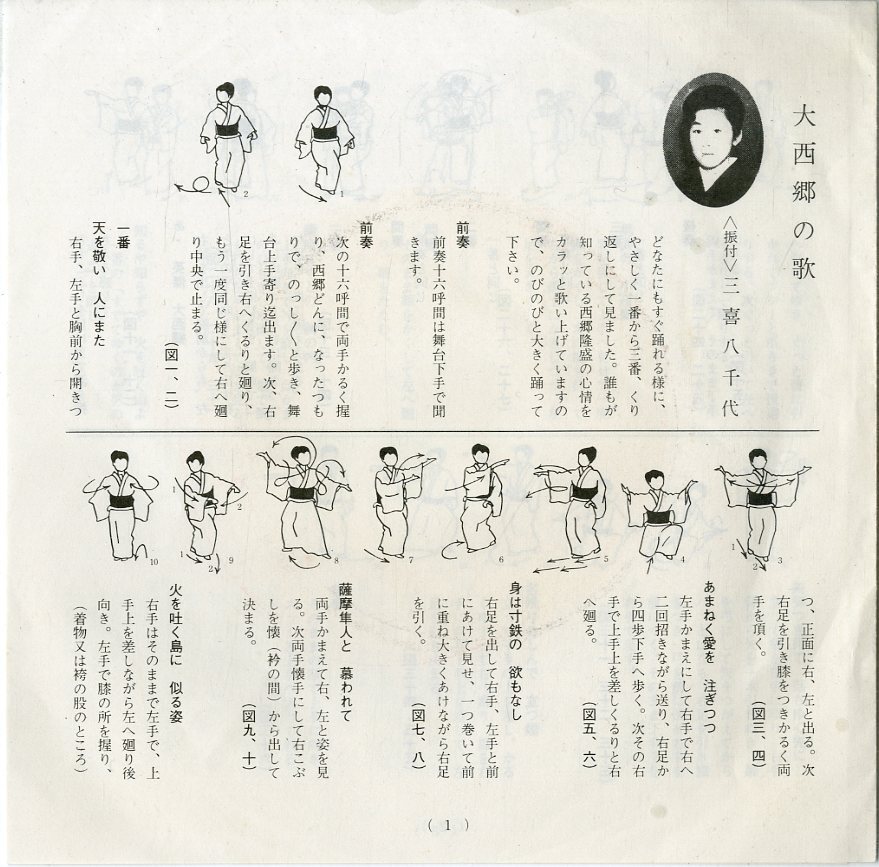 大西郷の歌
〈振付〉三喜八千代
どなたにもすぐ踊れる様に、
やさしく一番から三番、くり
返しにして見ました。誰もが
知っている西郷隆盛の心情を
カラッと歌い上げていますの
で、のびのびと大きく踊って
下さい。
前奏
前奏十六呼間は舞台下手で聞
きます。
前奏
次の十六呼間で両手かるく握
り、西郷どんに、なったつも
りで、のっし〳〵と歩き、舞
台上手寄り迄出ます。次、右
足を引き右へくるりと廻り、
もう一度同じ様にして右へ廻
り中央で止まる。
(図一、二)
一番
天を敬い 人にまた
右手、左手と胸前から開きつ
1
2
つ、正面に右、左と出る。次
右足を引き膝をつきかるく両
手を頂く。
(図三、四)
あまねく愛を 注ぎつつ
左手かまえにして右手で右へ
二回招きながら送り、右足か
ら四歩下手へ歩く。次その右
手で上手上を差しくるりと右
へ廻る。
(図五、六)
身は寸鉄の 欲もなし
右足を出して右手、左手と前
にあけて見せ、一つ巻いて前
に重ね大きくあけながら右足
を引く。
(図七、八)
薩摩隼人と 慕われて
両手かまえて右、左と姿を見
る。次両手懐手にして右こぶ
しを懐(衿の間)から出して
決まる。
(図九、十)
火を吐く島に 似る姿
右手はそのままで左手で、上
手上を差しながら左へ廻り後
向き。左手で膝の所を握り、
(着物又は袴の股のところ)
1
2
3
4
5
6
7
8
1
2
1
2
9
10
(1)